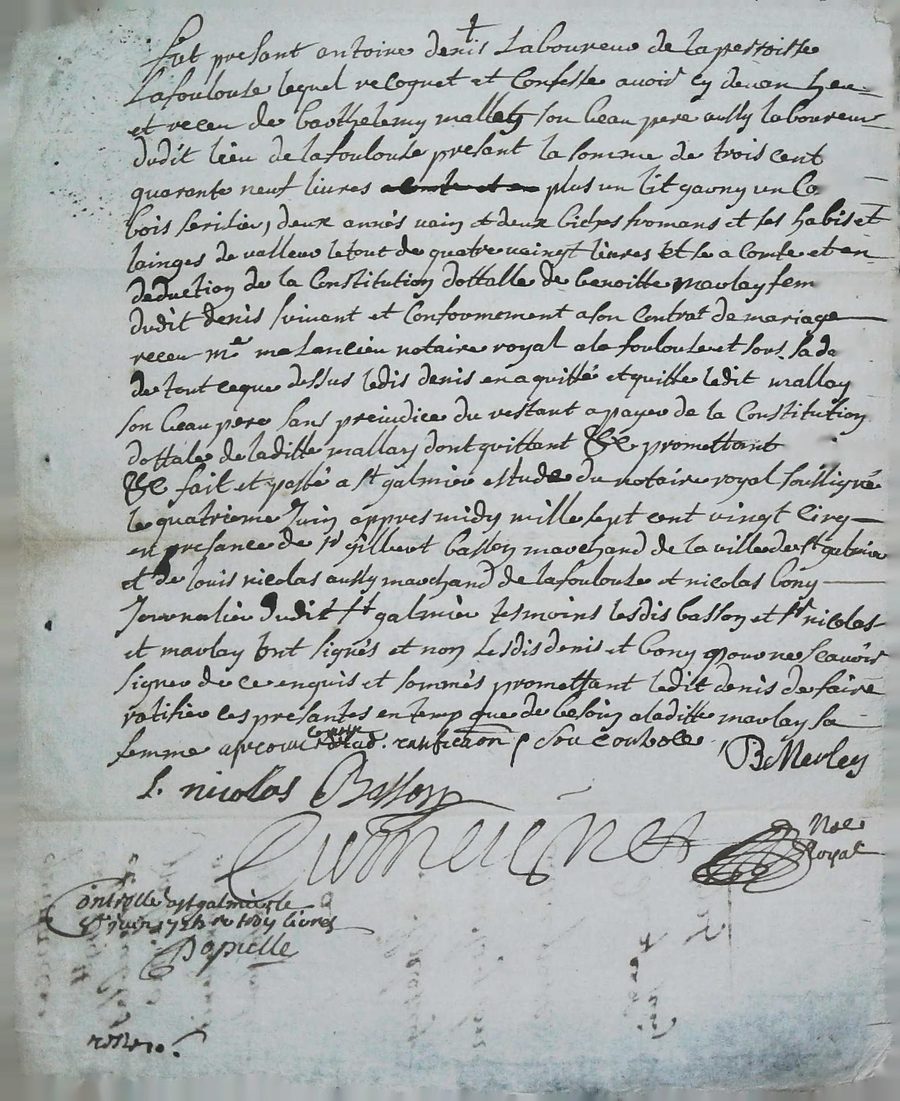 fut presant antoine denis Laboureur de la perroisse
Lafoulouse lequel recognet et Confesse avoir cy devan heu
et receu de barthelemy mallay son beau pere aussy laboureur
dudit lieu de lafoulouse presant la somme de trois cent
quarante neuf livres a comte et en plus un lit garny un Co
bois serilier, deux annés vain et deux bichets fromans et ses habis et
lainges de valleur le tout de quatre vaingt livres Et se a Comte et en
deduction de la Constitution dottalle de benoitte marlay fem
dudit denis suivant et Conformement a son Contrat de mariage
receu me melencieu notaire royal a la fouloust et sors sa de
de tout ceque dessus ledis denis en a quitté et quitte ledit mallay
son beau pere sans prejudice du restant a payer de la Constitution
dottale de laditte mallay dont quittant &c promettant
&c fait et passé a st galmier estude du notaire royal soussigné
le quatrieme Juin appres midy mille sept cent vingt cinq
en presance de sr gilbert basson marchand de la ville de st galmier
et de louis nicolas aussy marchand de lafoulouse et nicolas bony
Journalier dudit st galmier tesmoins lesdis basson et sr nicolas
et marlay ont signés et non Lesdis denis et bony pour ne scavoir
signer de ce enquis et sommés promettant ledit denis de faire
ratifier ces presantes en temp que de besoin a laditte marlay sa
femme
B Merley
L. nicolas Basson
Nre
Royal
Controllé a st galmier le
juin 1725 livres